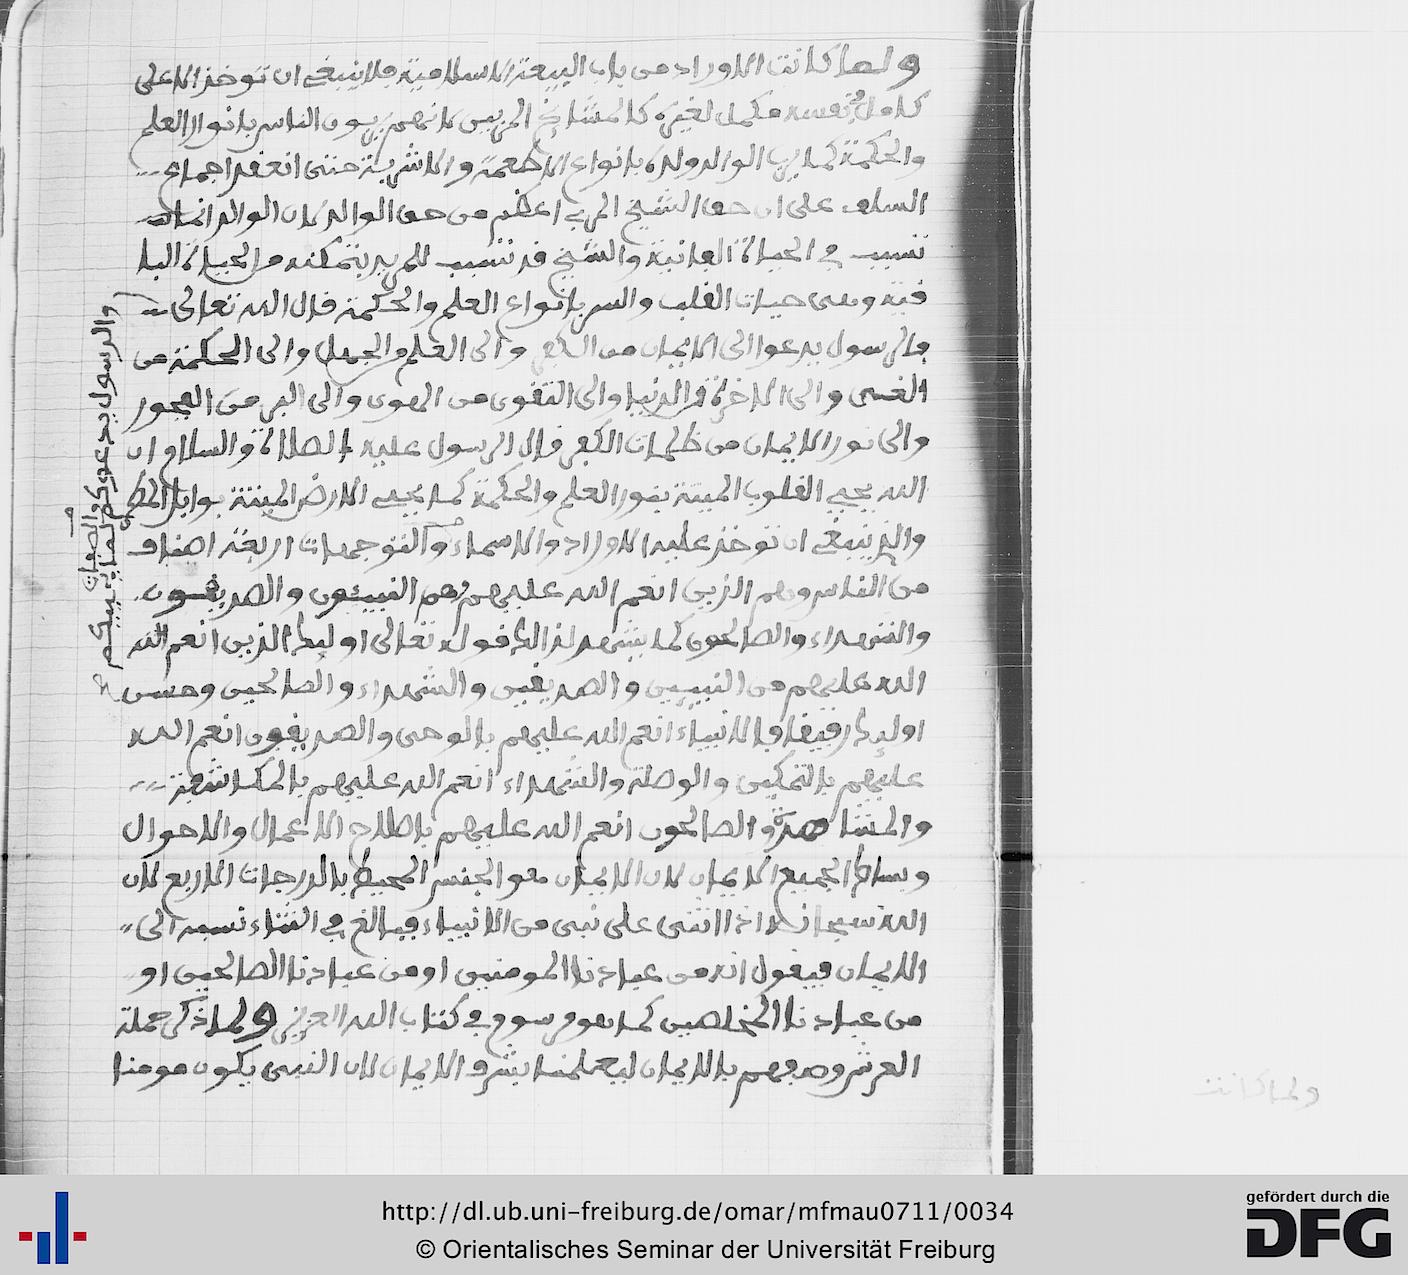 ولما كانت الاوراد من باب البيعة الاسلامية فلا ينبغي ان توخذ الا على
كامل في نفسه مكمل لغيره كالمشائخ المربين لانهم يربون الناس بانوار العلم
والحكمة كما يربي الوالد ولده بانواع الاطعمة والاشربة حتى انعقد اجماع
السلف على ان حق الشيخ المربي اعظم من حق الوالد لان الوالد انما
تسبب في الحياة الفانية والشيخ قد تسبب للمريد بتمكنه من الحياة البا
قية وهي حيات القلب والسر بانواع العلم والحكمة قال الله تعالى
فالرسول يدعوا الى الايمان من الكفر والى العلم من الجهل والى الحكمة من
الغي والى الاخرة من الدنيا والى التقوى من الهوى والى البر من الفجور
والى نور الايمان من ظلمات الكفر قال الرسول عليه الصلاة والسلام ان
الله يحيي القلوب الميتة بنور العلم والحكمة كما يحيي الارض الميتة بوابل المطر
والذي ينبغي ان توخذ عليه الاوراد والاسماء والتوجهات اربعة اصناف
من الناس وهم الذين انعم الله عليهم وهم النبيئون والصديقون
والشهداء والصالحون كما يشهد لذلك قوله تعالى اوليك الذين انعم الله
الله عليهم من النبيين والصديقين والشهداء والصالحين وحسن
اوليك رفيقا فالانبياء انعم الله عليهم بالوحي والصديقون انعم الله
عليهم بالتمكين والوصلة والشهداء انعم الله عليهم بالمكاشفة
والمشاهدة والصالحون انعم الله عليهم باصلاح الاعمال والاحوال
وبساط الجميع الايمان لان الايمان هو الجنس المحيط بالدرجات الاربع لان
الله سبحانه اذا اثنى على نبي من الانبياء فبالغ في الثناء نسبه الى
الايمان فيقول انه من عبادنا المومنين او من عبادنا الصالحين او
من عبادنا المخلصين كما هو مرسوم في كتاب الله العزيز ولما ذكر حملة
العرش وصفهم بالايمان ليعلمنا بشرف الايمان لان النبي يكون مومنا
والرسول يدعوكم لما يحييكم
والصواب
ولما كانت
http://dl.ub.uni-freiburg.de/omar/mfmau0711/0034
© Orientalisches Seminar der Universität Freiburg
gefördert durch die
DFG